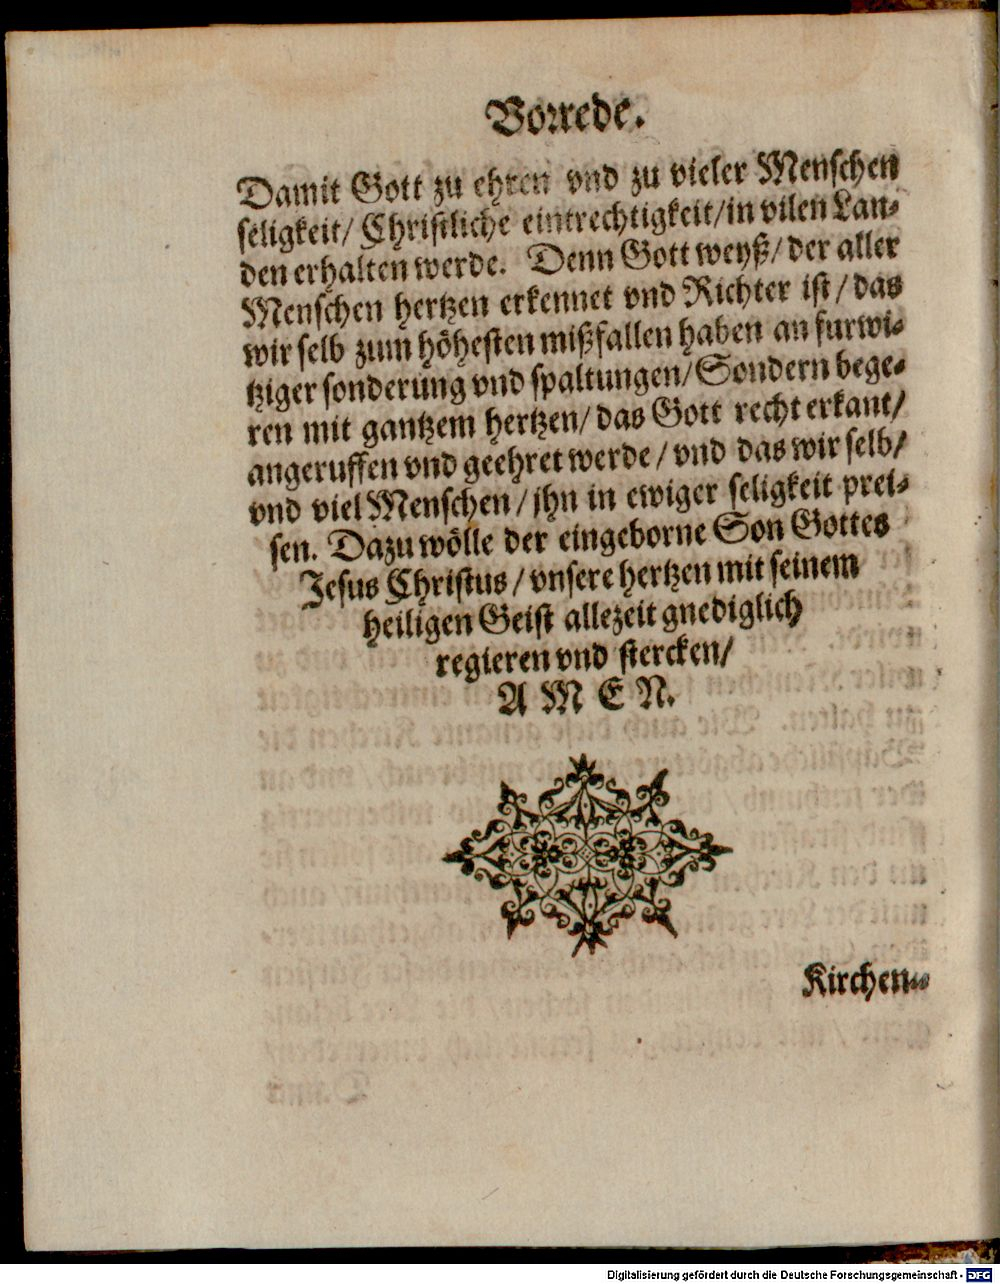 Vorrede.
Damit Gott zu ehren vnd zu vieler Menschen
seligkeit/ Christliche eintrechtigkeit/in vilen Lan-
den erhalten werde. Denn Gott weyß/ der aller
Menschen hertzen erkennet vnd Richter ist/ das
wir selb zum höhesten mißfallen haben an furwi-
tziger sonderung vnd spaltungen/ Sondern bege-
ren mit gantzem hertzen/ das Gott recht erkant/
angeruffen vnd geehret werde/ vnd das wir selb/
vnd viel Menschen/ jhn in ewiger seligkeit prei-
sen. Dazu wölle der eingeborne Son Gottes
Jesus Christus/ vnsere hertzen mit seinem
heiligen Geist allezeit gnediglich
regieren vnd stercken/
A M E N.
Kirchen-
Digitalisierung gefördert durch die Deutsche Forschungsgemeinschaft - DFG